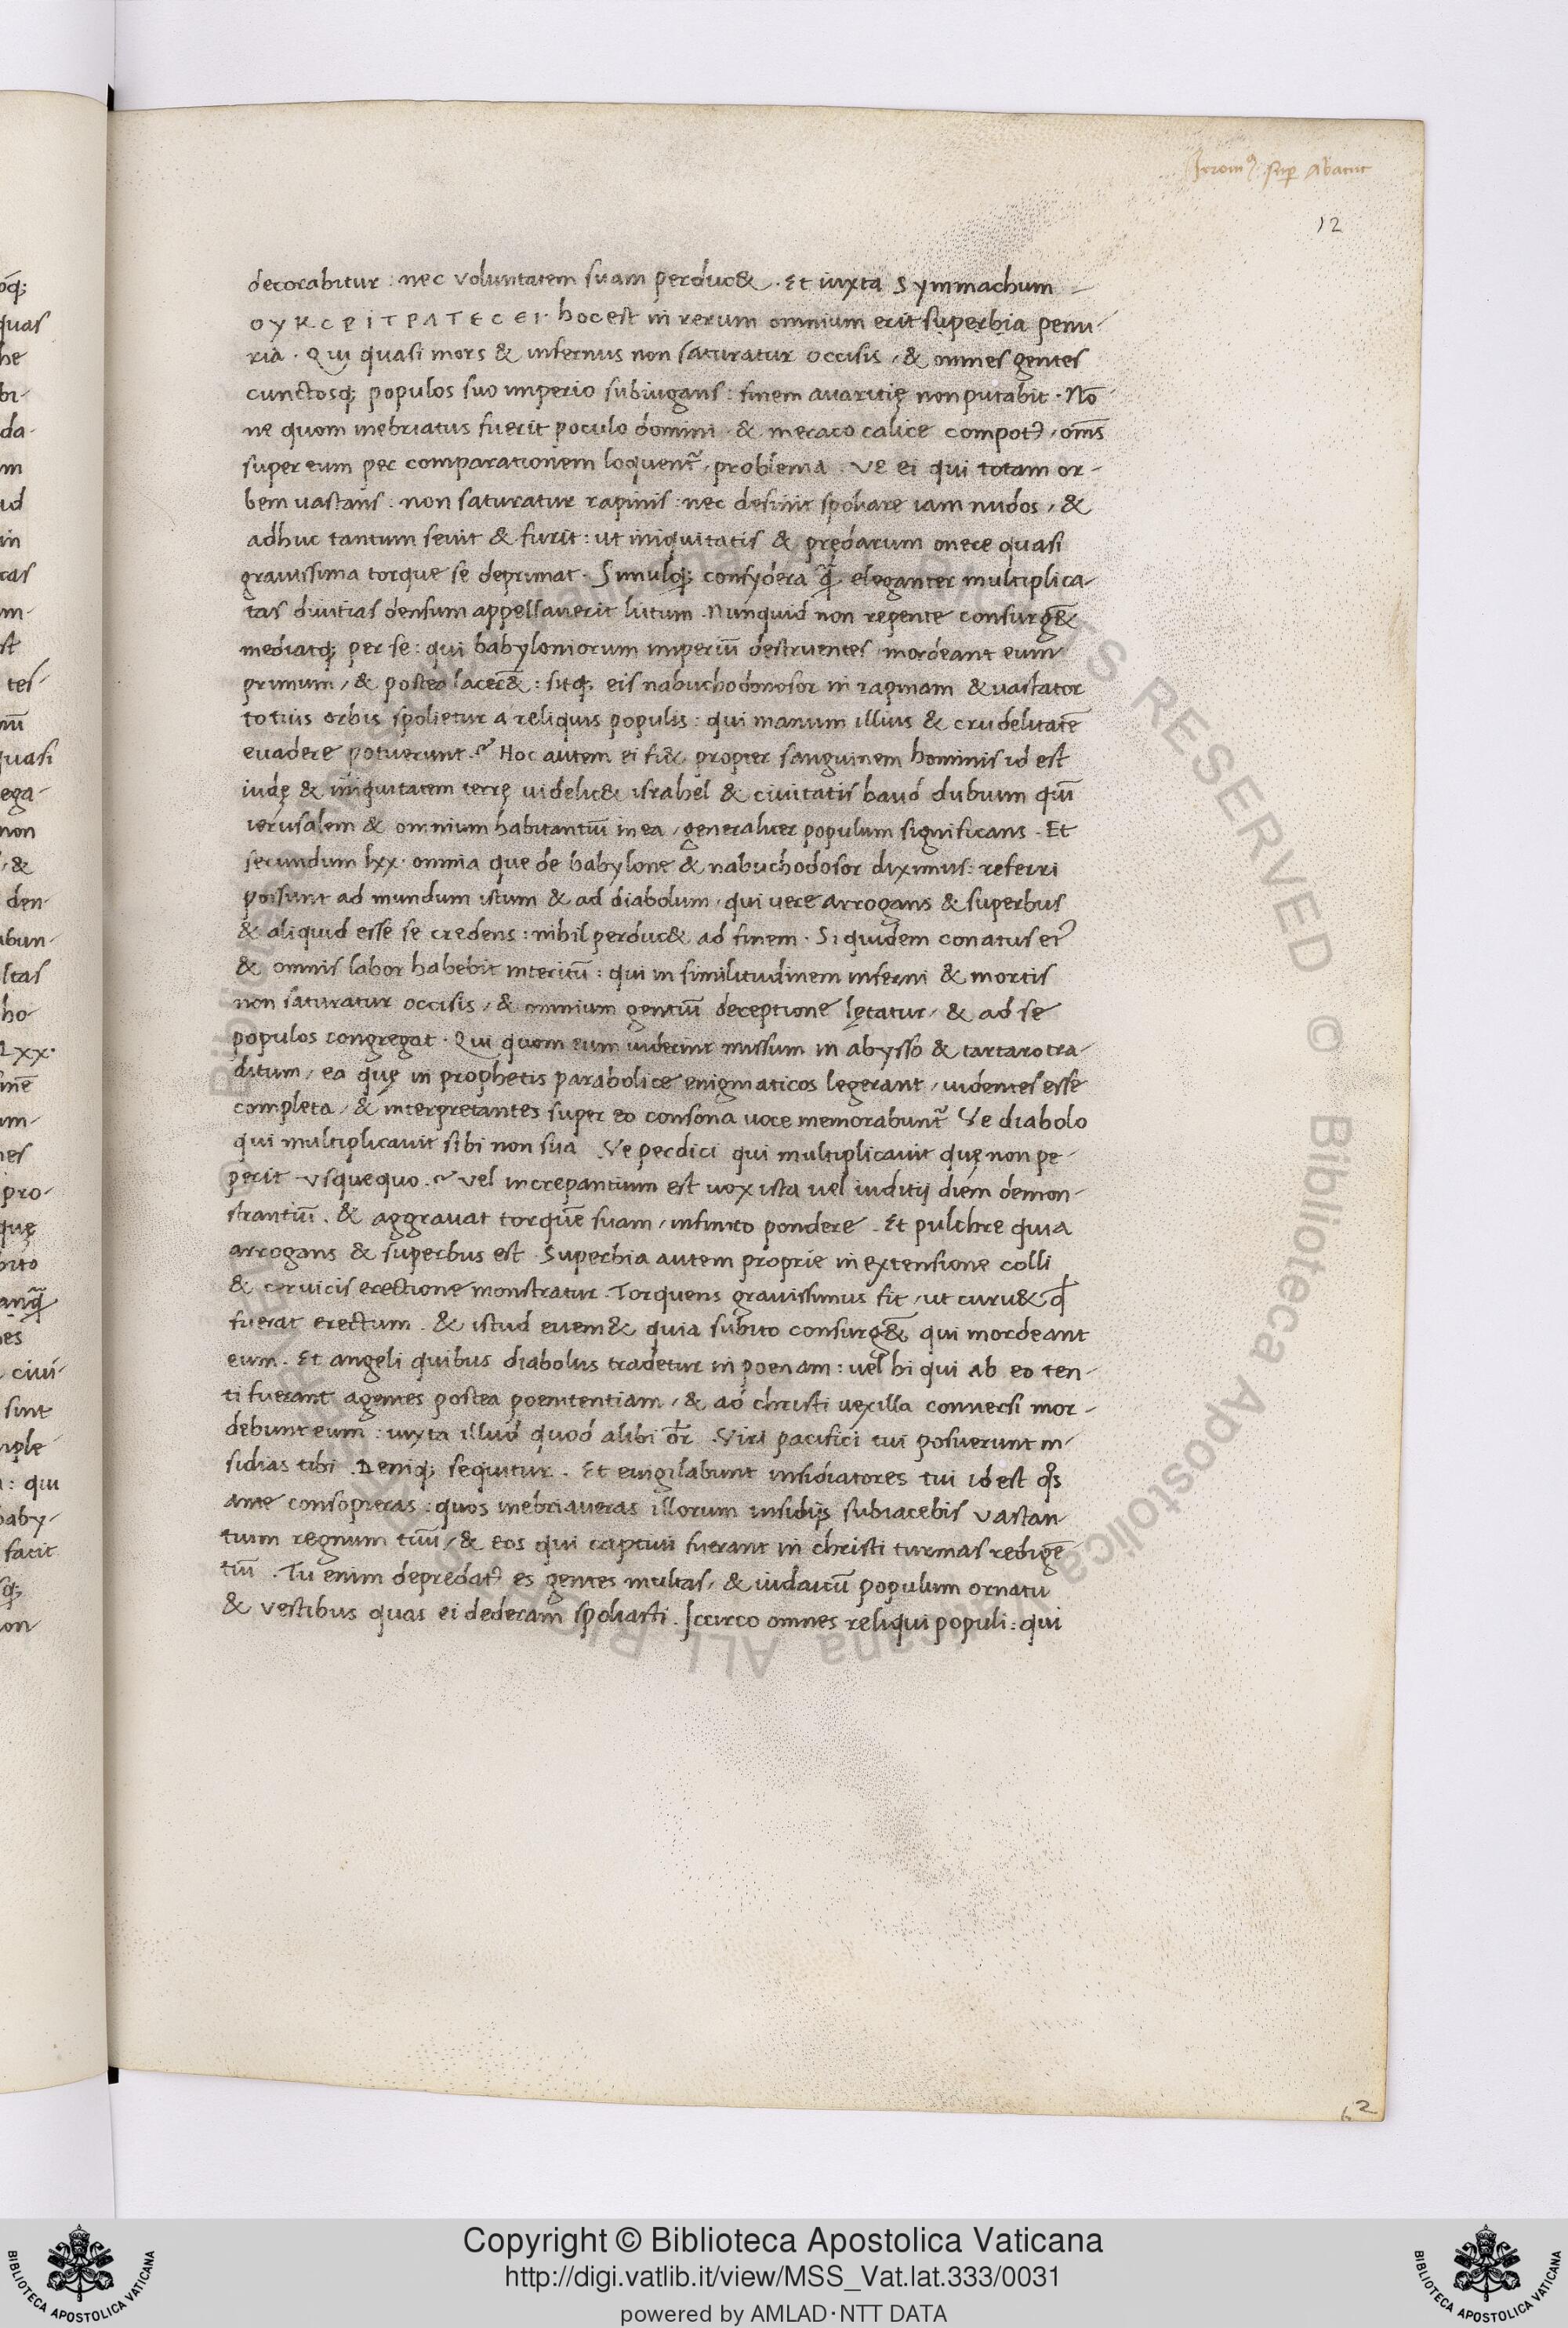 Ieronꝰ sup Abacuc
12
decorabitur : nec voluntatem suam perduc& . Et iuxta Symmachum
ΟΥΚ C P I T P A T E C E I · hoc est in rerum omnium erit superbia penu-
ria . Qui quasi mors & infernus non saturatur occisis , & omnes gentes
cunctosq; populos suo imperio subiugans : finem auaritię non putabit . Nō
ne quom inebriatus fuerit poculo domini & meraco calice compotꝰ , om̄s
super eum per comparationem loquent̃ , problema . Ve ei qui totam or-
bem vastans . non saturatur rapinis : nec desinit spoliare iam nudos , &
adhuc tantum seuit & furit : ut iniquitatis & prędarum onere quasi
grauissima torque se deprimat . Simulq; consydera q̃ eleganter multiplica-
tas diuitias densum appellauerit lutum . Nunquid non repente consurgē&
mediatq; per se : qui babyloniorum imperiū destruentes mordeant eum
primum , & postea lacerē& : sitq; eis nabuchodonosor in rapinam & vastator
totius orbis spolietur a reliquis populis : qui manum illius & crudelitatē
euadere potuerunt .~ Hoc autem ei fi& propter sanguinem hominis id est
iudę & iniquitatem terrę uidelic& israhel & ciuitatis haud dubium quī
ierusalem & omnium habitantiū in ea , generaliter populum significans . Et
secundum lxx . omnia que de babylone & nabuchodosor diximus : referri
possunt ad mundum istum & ad diabolum , qui uere arrogans & superbus
& aliquid esse se credens : nihil perduc& ad finem . Si quidem conatus eiꝰ
& omnis labor habebit interitū : qui in similitudinem inferni & mortis
non saturatur occisis , & omnium gentiū deceptione lętatur , & ad se
populos congregat . Qui quom eum uiderint missum in abysso & tartaro tra-
ditum , ea quę in prophetis parabolice enigmaticos legerant , uidentes esse
completa , & interpretantes super eo consona uoce memorabunt̃ Ve diabolo
qui multiplicauit sibi non sua . Ve perdici qui multiplicauit quę non pe-
perit vsquequo .~ vel increpantium est uox ista uel iuditij diem demon-
strantiū . & aggrauat torquē suam , infinito pondere . Et pulchre quia
arrogans & superbus est . Superbia autem proprie in extensione colli
& ceruicis erectione monstratur . Torquens grauissimus fit , ut curu& qđ
fuerat erectum . & istud euem& quia subito consurgē& qui mordeant
eum . Et angeli quibus diabolus tradetur in poenam : uel hi qui ab eo ten-
ti fuerant agentes postea poenitentiam , & ad christi uexilla conuersi mor-
debunt eum : iuxta illud quod alibi dr̄ . Viri pacifici tui posuerunt in-
sidias tibi . Deniq; sequitur . Et euigilabunt insidiatores tui id est qōs
ante consopieras : quos inebriaueras illorum insidijs subiacebis vastan
tium regnum tuū , & eos qui captiui fuerant in christi turmas redigē
tiū . Tu enim depredatꝰ es gentes multas , & iudaicū populum ornatu
& vestibus quas ei dederam spoliasti . Iccirco omnes reliqui populi : qui
62
Copyright © Biblioteca Apostolica Vaticana
http://digi.vatlib.it/view/MSS_Vat.lat.333/0031
powered by AMLAD·NTT DATA